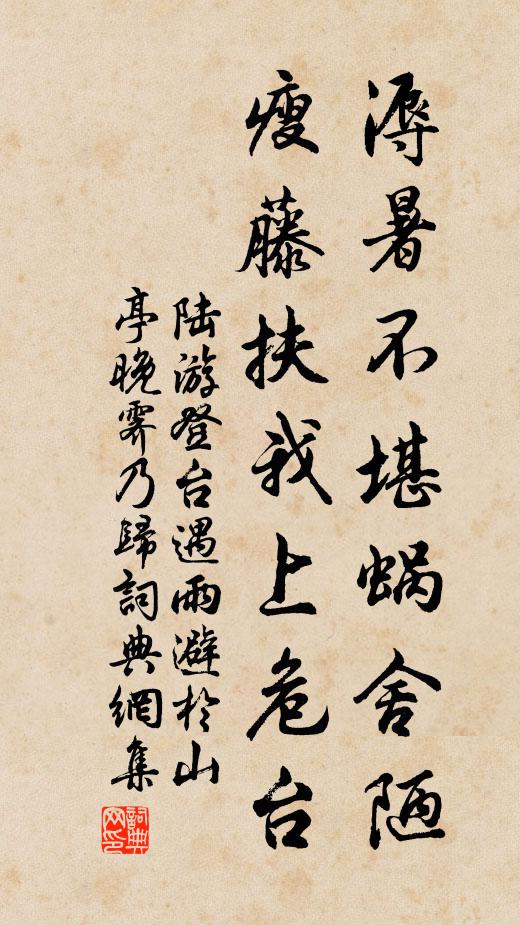 溽暑不堪蝸舍陋
瘦藤扶我上危台
陆游登台遇雨避於山
亭晚霁乃歸詞典網集
詞典
网印